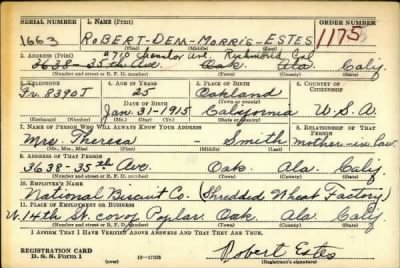 SERIAL NUMBER 1. NAME (Print) ORDER NUMBER
1663 ROBERT-DEM-MORRIS-ESTES 1175
(First) (Middle) (Last)
2. ADDRESS (Print) #710 Chanslor Ave. Richmond Cal
3638-35th Ave. Oak. Ala. Calif
(Number and street or R. F. D. number) (Town) (County) (State)
3. TELEPHONE 4. AGE IN YEARS 5. PLACE OF BIRTH 6. COUNTRY OF CITIZENSHIP
Fr. 8390J 25 Oakland
(Town or county)
DATE OF BIRTH
Jan. 31-1915 California U.S.A.
(Exchange) (Number) (Mo.) (Day) (Yr.) (State or country)
7. NAME OF PERSON WHO WILL ALWAYS KNOW YOUR ADDRESS 8. RELATIONSHIP OF THAT PERSON
Mrs. Theresa - Smith mother-in-law.
(Mr., Mrs., Miss) (First) (Middle) (Last)
9. ADDRESS OF THAT PERSON
3638-35th Ave. Oak. Ala. Calif.
(Number and street or R. F. D. number) (Town) (County) (State)
10. EMPLOYER'S NAME
National Biscuit Co. (Shredded Wheat Factory)
11. PLACE OF EMPLOYMENT OR BUSINESS
14th St. cor of Poplar. Oak. Ala. Calif.
(Number and street or R. F. D. number) (Town) (County) (State)
I AFFIRM THAT I HAVE VERIFIED ABOVE ANSWERS AND THAT THEY ARE TRUE.
REGISTRATION CARD
D. S. S. Form 1 (over) 16-17105 Robert Estes
(Registrant's signature)